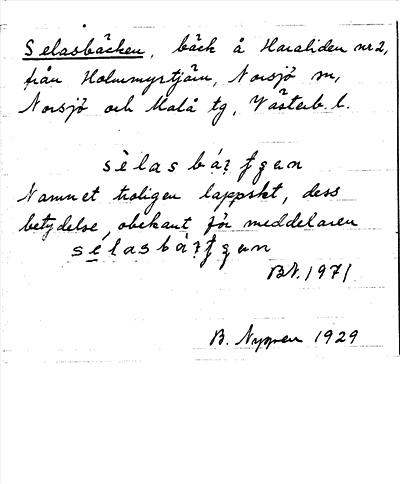 Selasbäcken, bäck å Haraliden nr 2,
från Holmmyrtjärn, Norsjö sn,
Norsjö och Malå tg, Västerb. l.
sèlas bá
Namnet troligen lappskt, dess
betydelse, obekant för meddelaren
sélasbá
BN. 1971
B. Nygren 1929